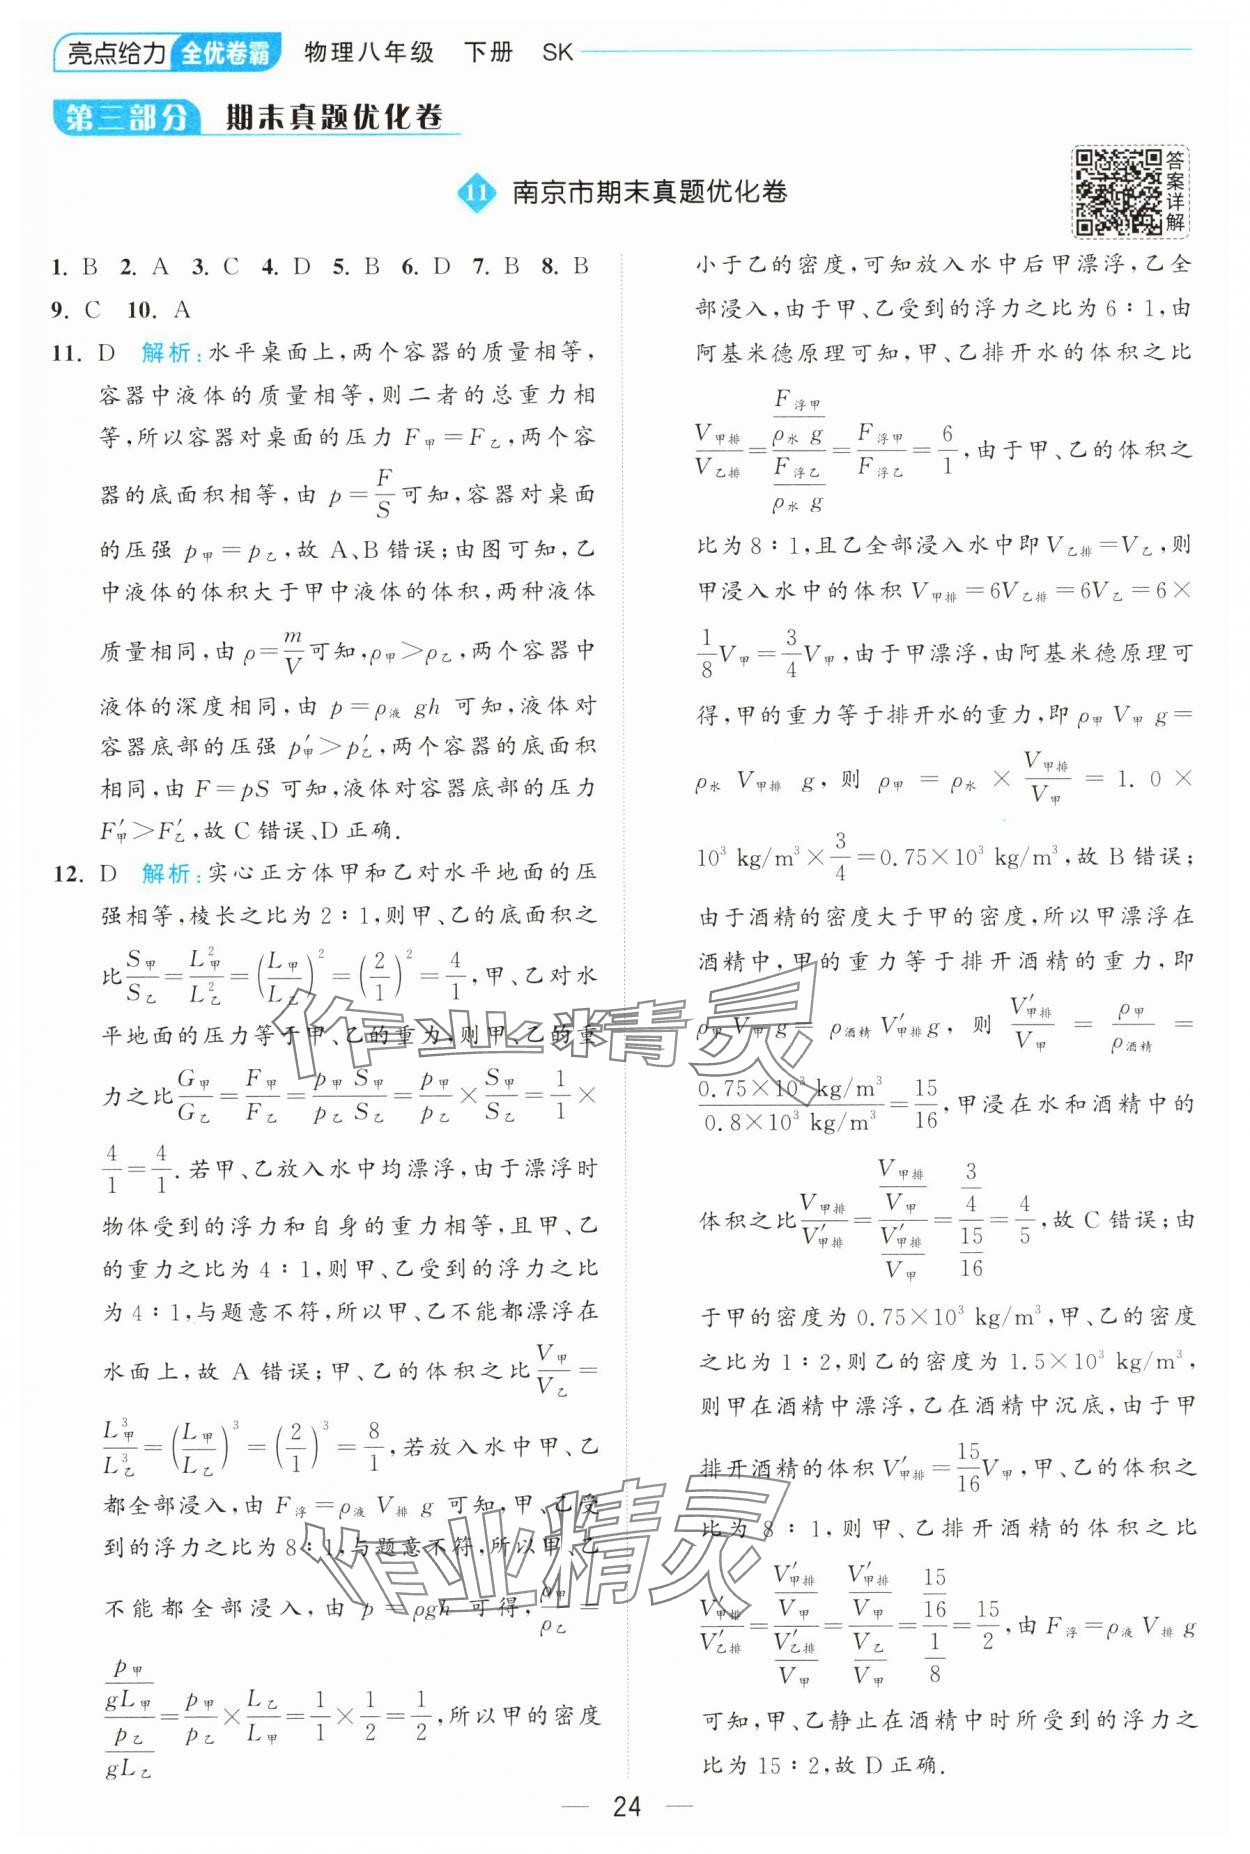 亮点给力 全优卷霸 物理八年级 下册 SK
第三部分 期末真题优化卷
11 南京市期末真题优化卷
答案详解
1. B 2. A 3. C 4. D 5. B 6. D 7. B 8. B
9. C 10. A
11. D 解析:水平桌面上,两个容器的质量相等,
容器中液体的质量相等,则二者的总重力相
等,所以容器对桌面的压力 F甲=F乙,两个容
器的底面积相等,由 p=F/S可知,容器对桌面
的压强 p甲=p乙,故 A、B 错误;由图可知,乙
中液体的体积大于甲中液体的体积,两种液体
质量相同,由 ρ=m/V可知,ρ甲>ρ乙,两个容器中
液体的深度相同,由 p=ρ液 gh 可知,液体对
容器底部的压强 p′甲>p′乙,两个容器的底面积
相同,由 F=pS 可知,液体对容器底部的压力
F′甲>F′乙,故 C 错误、D 正确.
12. D 解析:实心正方体甲和乙对水平地面的压
强相等,棱长之比为 2∶1,则甲、乙的底面积之
比S甲/S乙=L²甲/L²乙=(L甲/L乙)²=(2/1)²=4/1,甲、乙对水
平地面的压力等于甲、乙的重力,则甲、乙的重
力之比G甲/G乙=F甲/F乙=p甲 S甲/p乙 S乙=p甲/p乙×S甲/S乙=1/1×
4/1=4/1.若甲、乙放入水中均漂浮,由于漂浮时
物体受到的浮力和自身的重力相等,且甲、乙
的重力之比为 4∶1,则甲、乙受到的浮力之比
为 4∶1,与题意不符,所以甲、乙不能都漂浮在
水面上,故 A 错误;甲、乙的体积之比V甲/V乙=
L³甲/L³乙=(L甲/L乙)³=(2/1)³=8/1,若放入水中甲、乙
都全部浸入,由 F浮=ρ液 V排 g 可知,甲、乙受
到的浮力之比为 8∶1,与题意不符,所以甲、乙
不能都全部浸入,由 p=ρgh 可得,ρ甲/ρ乙=
(p甲/gL甲)/(p乙/gL乙)=p甲/p乙×L乙/L甲=1/1×1/2=1/2,所以甲的密度
小于乙的密度,可知放入水中后甲漂浮,乙全
部浸入,由于甲、乙受到的浮力之比为 6∶1,由
阿基米德原理可知,甲、乙排开水的体积之比
V甲排/V乙排=(F浮甲/ρ水 g)/(F浮乙/ρ水 g)=F浮甲/F浮乙=6/1,由于甲、乙的体积之
比为 8∶1,且乙全部浸入水中即 V乙排=V乙,则
甲浸入水中的体积 V甲排=6V乙排=6V乙=6×
1/8V甲=3/4V甲,由于甲漂浮,由阿基米德原理可
得,甲的重力等于排开水的重力,即 ρ甲 V甲 g=
ρ水 V甲排 g,则 ρ甲=ρ水×V甲排/V甲=1.0×
10³ kg/m³×3/4=0.75×10³ kg/m³,故 B 错误;
由于酒精的密度大于甲的密度,所以甲漂浮在
酒精中,甲的重力等于排开酒精的重力,即
ρ甲 V甲 g=ρ酒精 V′甲排 g,则 V′甲排/V甲=ρ甲/ρ酒精=
0.75×10³ kg/m³/0.8×10³ kg/m³=15/16,甲浸在水和酒精中的
体积之比V甲排/V′甲排=(V甲排/V甲)/(V′甲排/V甲)=(3/4)/(15/16)=4/5,故 C 错误;由
于甲的密度为 0.75×10³ kg/m³,甲、乙的密度
之比为 1∶2,则乙的密度为 1.5×10³ kg/m³,
则甲在酒精中漂浮,乙在酒精中沉底,由于甲
排开酒精的体积 V′甲排=15/16V甲,甲、乙的体积之
比为 8∶1,则甲、乙排开酒精的体积之比
V′甲排/V′乙排=(V′甲排/V甲)/(V′乙排/V甲)=(V′甲排/V甲)/(V乙/V甲)=(15/16)/(1/8)=15/2,由 F浮=ρ液 V排 g
可知,甲、乙静止在酒精中时所受到的浮力之
比为 15∶2,故 D 正确.
作业精灵
作业精灵
— 24 —